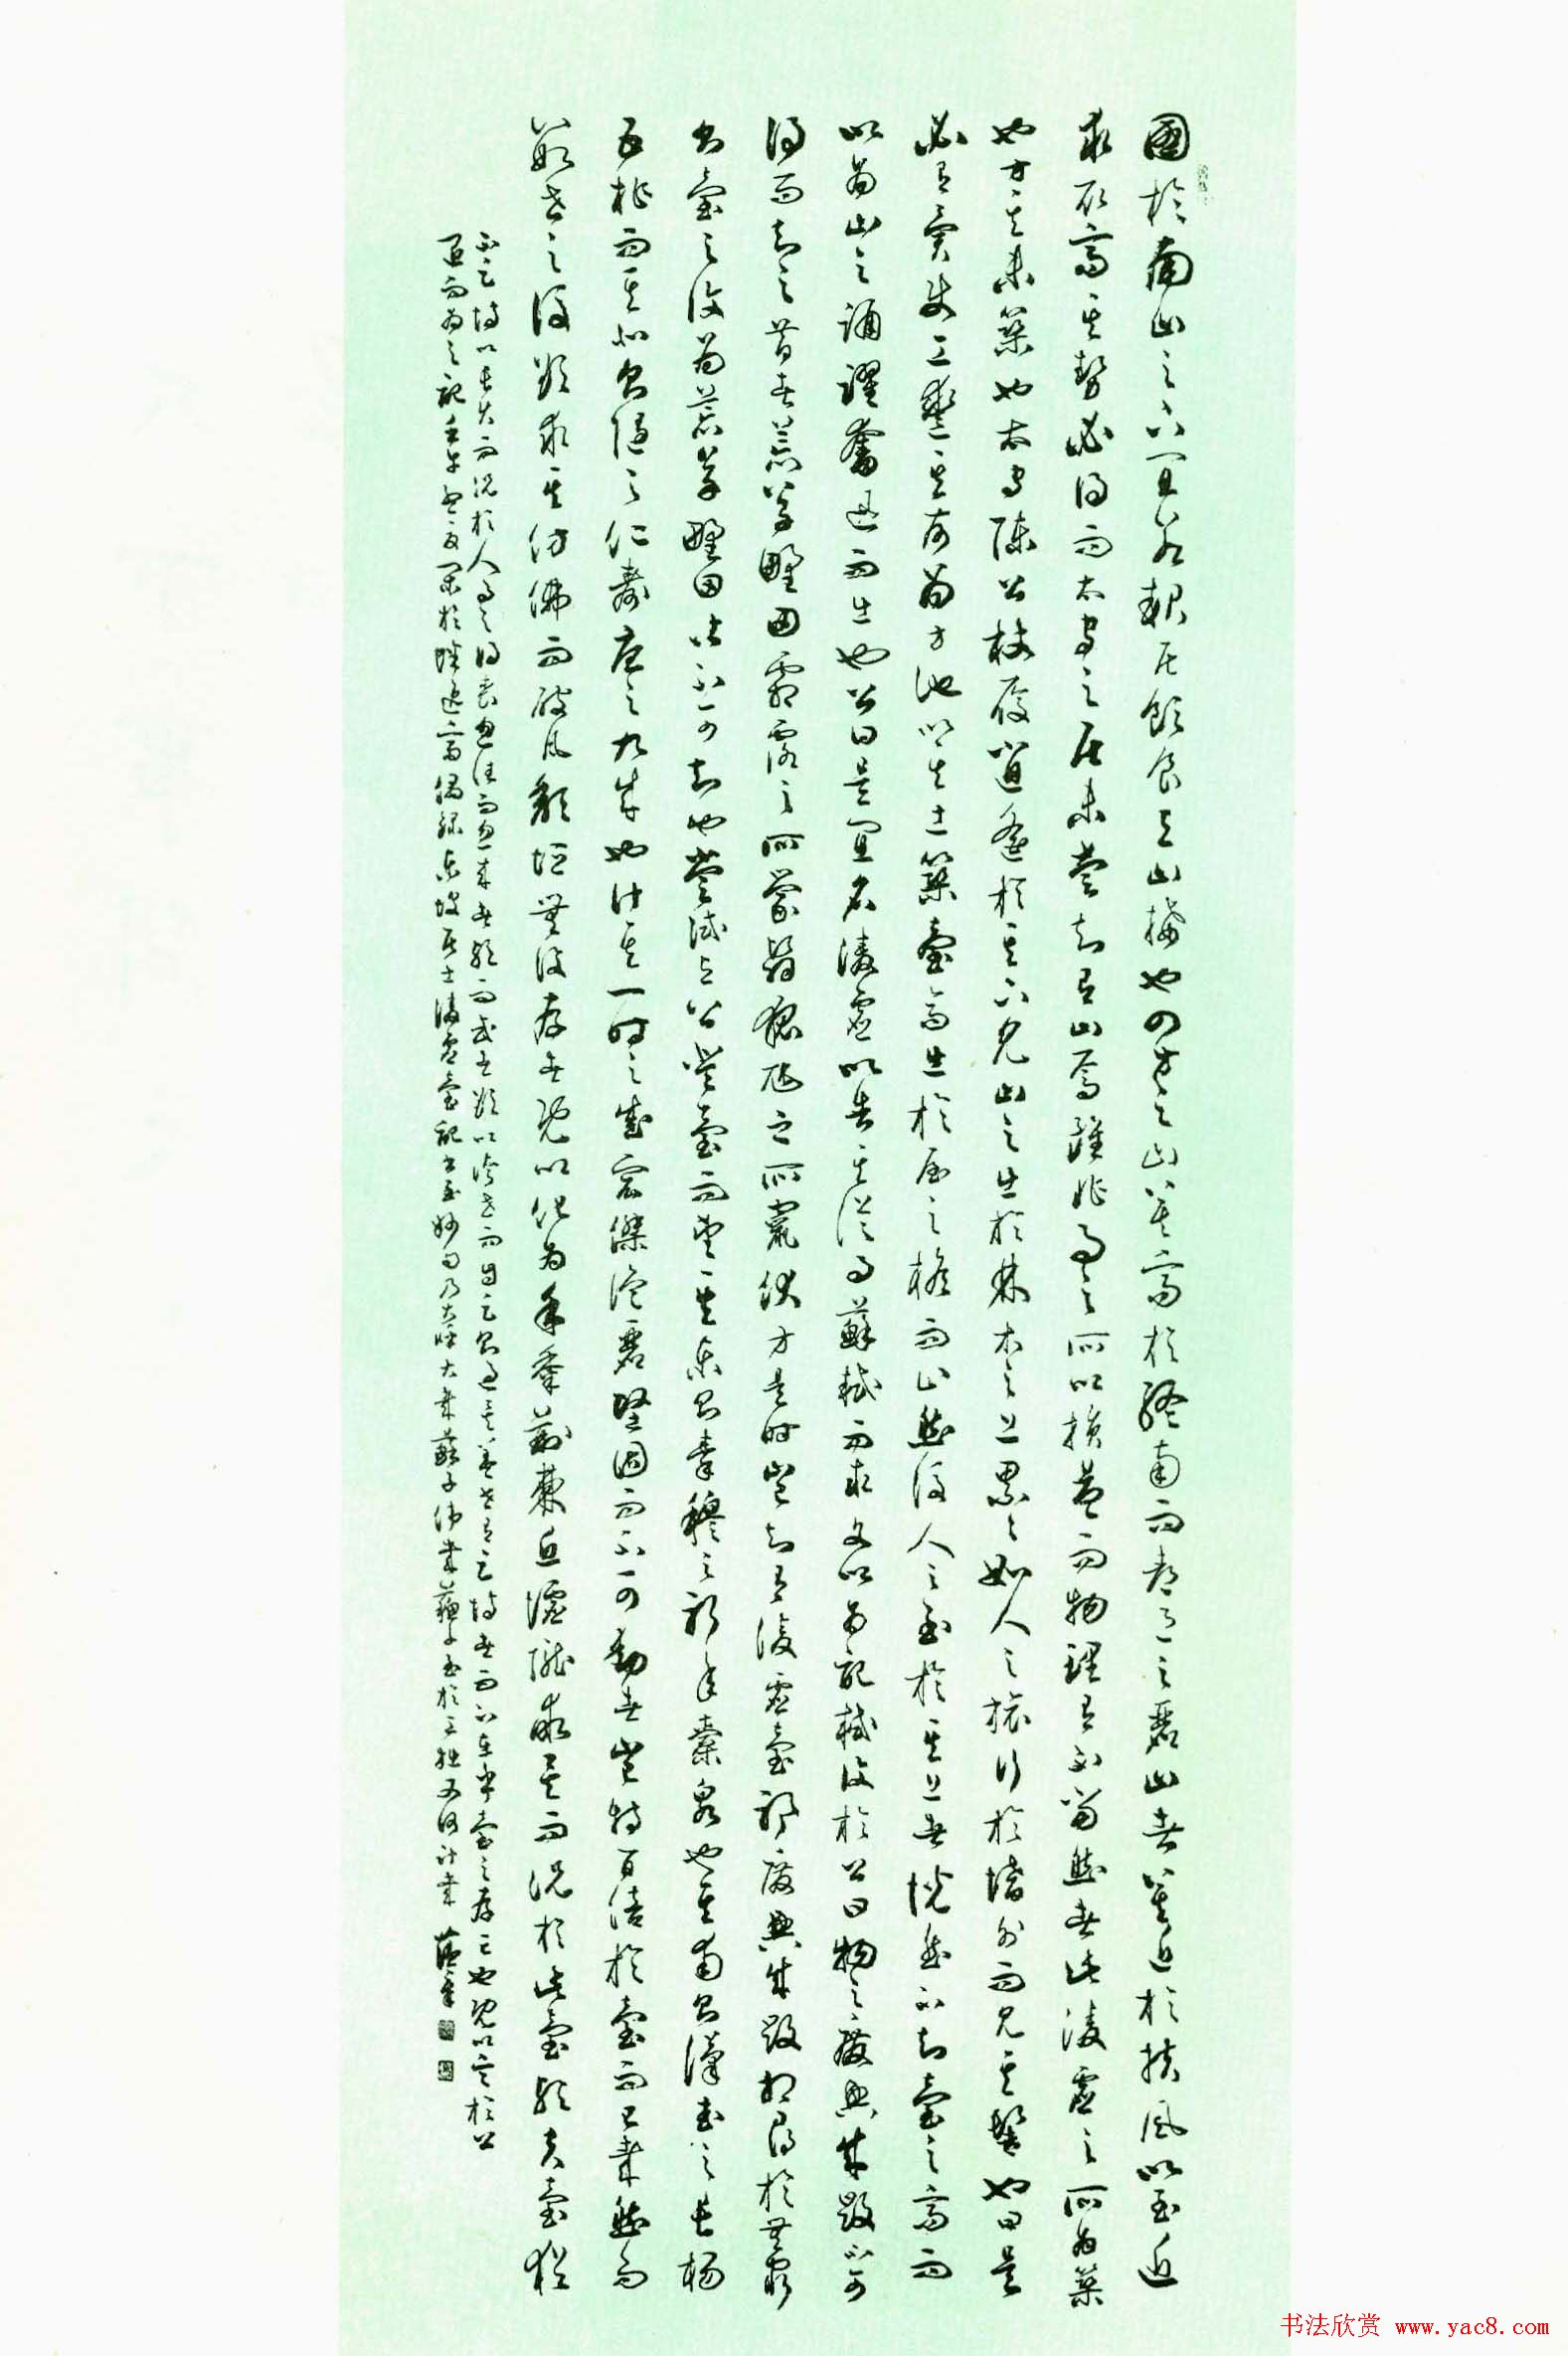 國於南山之下宜若起居飲食與山接也四方之山莫高於終南而都邑之麗山者莫近於扶風以至近
求最高其勢必得而太守之居未嘗知有山焉雖非事之所以損益而物理有不當然者此凌虛之所為築
也方其未築也太守陳公杖履逍遙於其下見山之出於林木之上累々如人之旅行於墻外而見其髻也曰是
必有異使工鑿其前為方池以其土築臺高出於屋之檐而止然後人之至於其上者恍然不知臺之高而
以為山之踊躍奮迅而出也公曰是宜名凌虛以告其從事蘇軾而求文以為記軾復於公曰物之廢興成毀不可
得而知之昔者荒草野田霜露之所蒙翳狐虺之所竄伏方是時豈知有凌虛臺耶廢興成毀相尋於無窮
則臺之復為荒草野田皆不可知也嘗試與公登臺而望其東則秦穆之祈年橐泉也其南則漢武之長楊
五柞而其北則隋之仁壽唐之九成也計其一時之盛宏傑詭麗堅固而不可動者豈特百倍於臺而已哉然而
數世之後欲求其仿佛而破瓦頹垣無復存者既以化為禾黍荊棘丘墟隴畝矣而況於此臺歟夫臺猶
不足恃以長久而況於人事之得喪忽往而忽來者歟而或者欲以誇世而自足則過矣蓋世有足恃者而不在乎臺之存亡也既以言於公
退而為之記壬午 於 齋偶錄東坡居士凌虛臺記書至妙句乃大呼大哉蘇子偉哉蘇子至於工拙又何計哉
书法欣赏 www.yac8.com